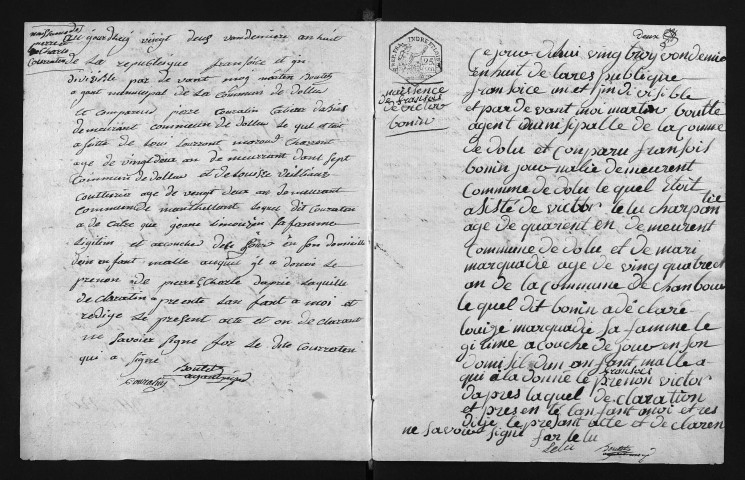 naissance de
pierre
Charle
Courratin
aujourdhuy vingt deux vandemiere an huit
de la republique fransoice et in
divisible par de vant moy martin Boutet
agant municipal de la Commun de dollus
et comparus pierre
demeurant commeun de dollus le quel etoit
asiste de louis marraud Charont
age de vingt deux an de meurrant dans sept
Commeun de dollus et de
Coutturier age de vingt deux an demeurant
commeun de manthellant lequel dit Courratin
a de clare que jeane limouzin sa famme
legitim et acouche de se jour en son domicille
dun en fant malle auquel il a donée le
prenon de pierre Charle daprée laquille
de claration presente lan fant a moi et
redige le present acte et on declarant
ne savoier signe for le dite Courraten
qui a signe
Courratin
Boutet
agant
deux
INDRE ET LOIRE
naissence
de fransois
victor
bonin
Ce jour dhui ving troy vendemie
en huit de la res publique
fransoice un et findi visible
et par de vant moi martin boutte
agent munisipalle de la Commune
de dolu et conparu fransois
bonin jour nalié demeurent
Commune de dolu le quel etoit
asisté de victor le lu charpantié
age de quarent en demeurent
Commune de dolu et de mari
marquadié age de ving quatre
an de la commune de chanbour
le quel dit bonin a dé claré
louise marquadé sa famme le
gitime a couche de jour en son
domisil dun anfant malle a
qui a la donné le prenon fransois victor
dapres la quel de claration
et presen té lanfant moi et res
dije le present acte et de claren
ne savoir signe for le lu
Lelu
Boutet